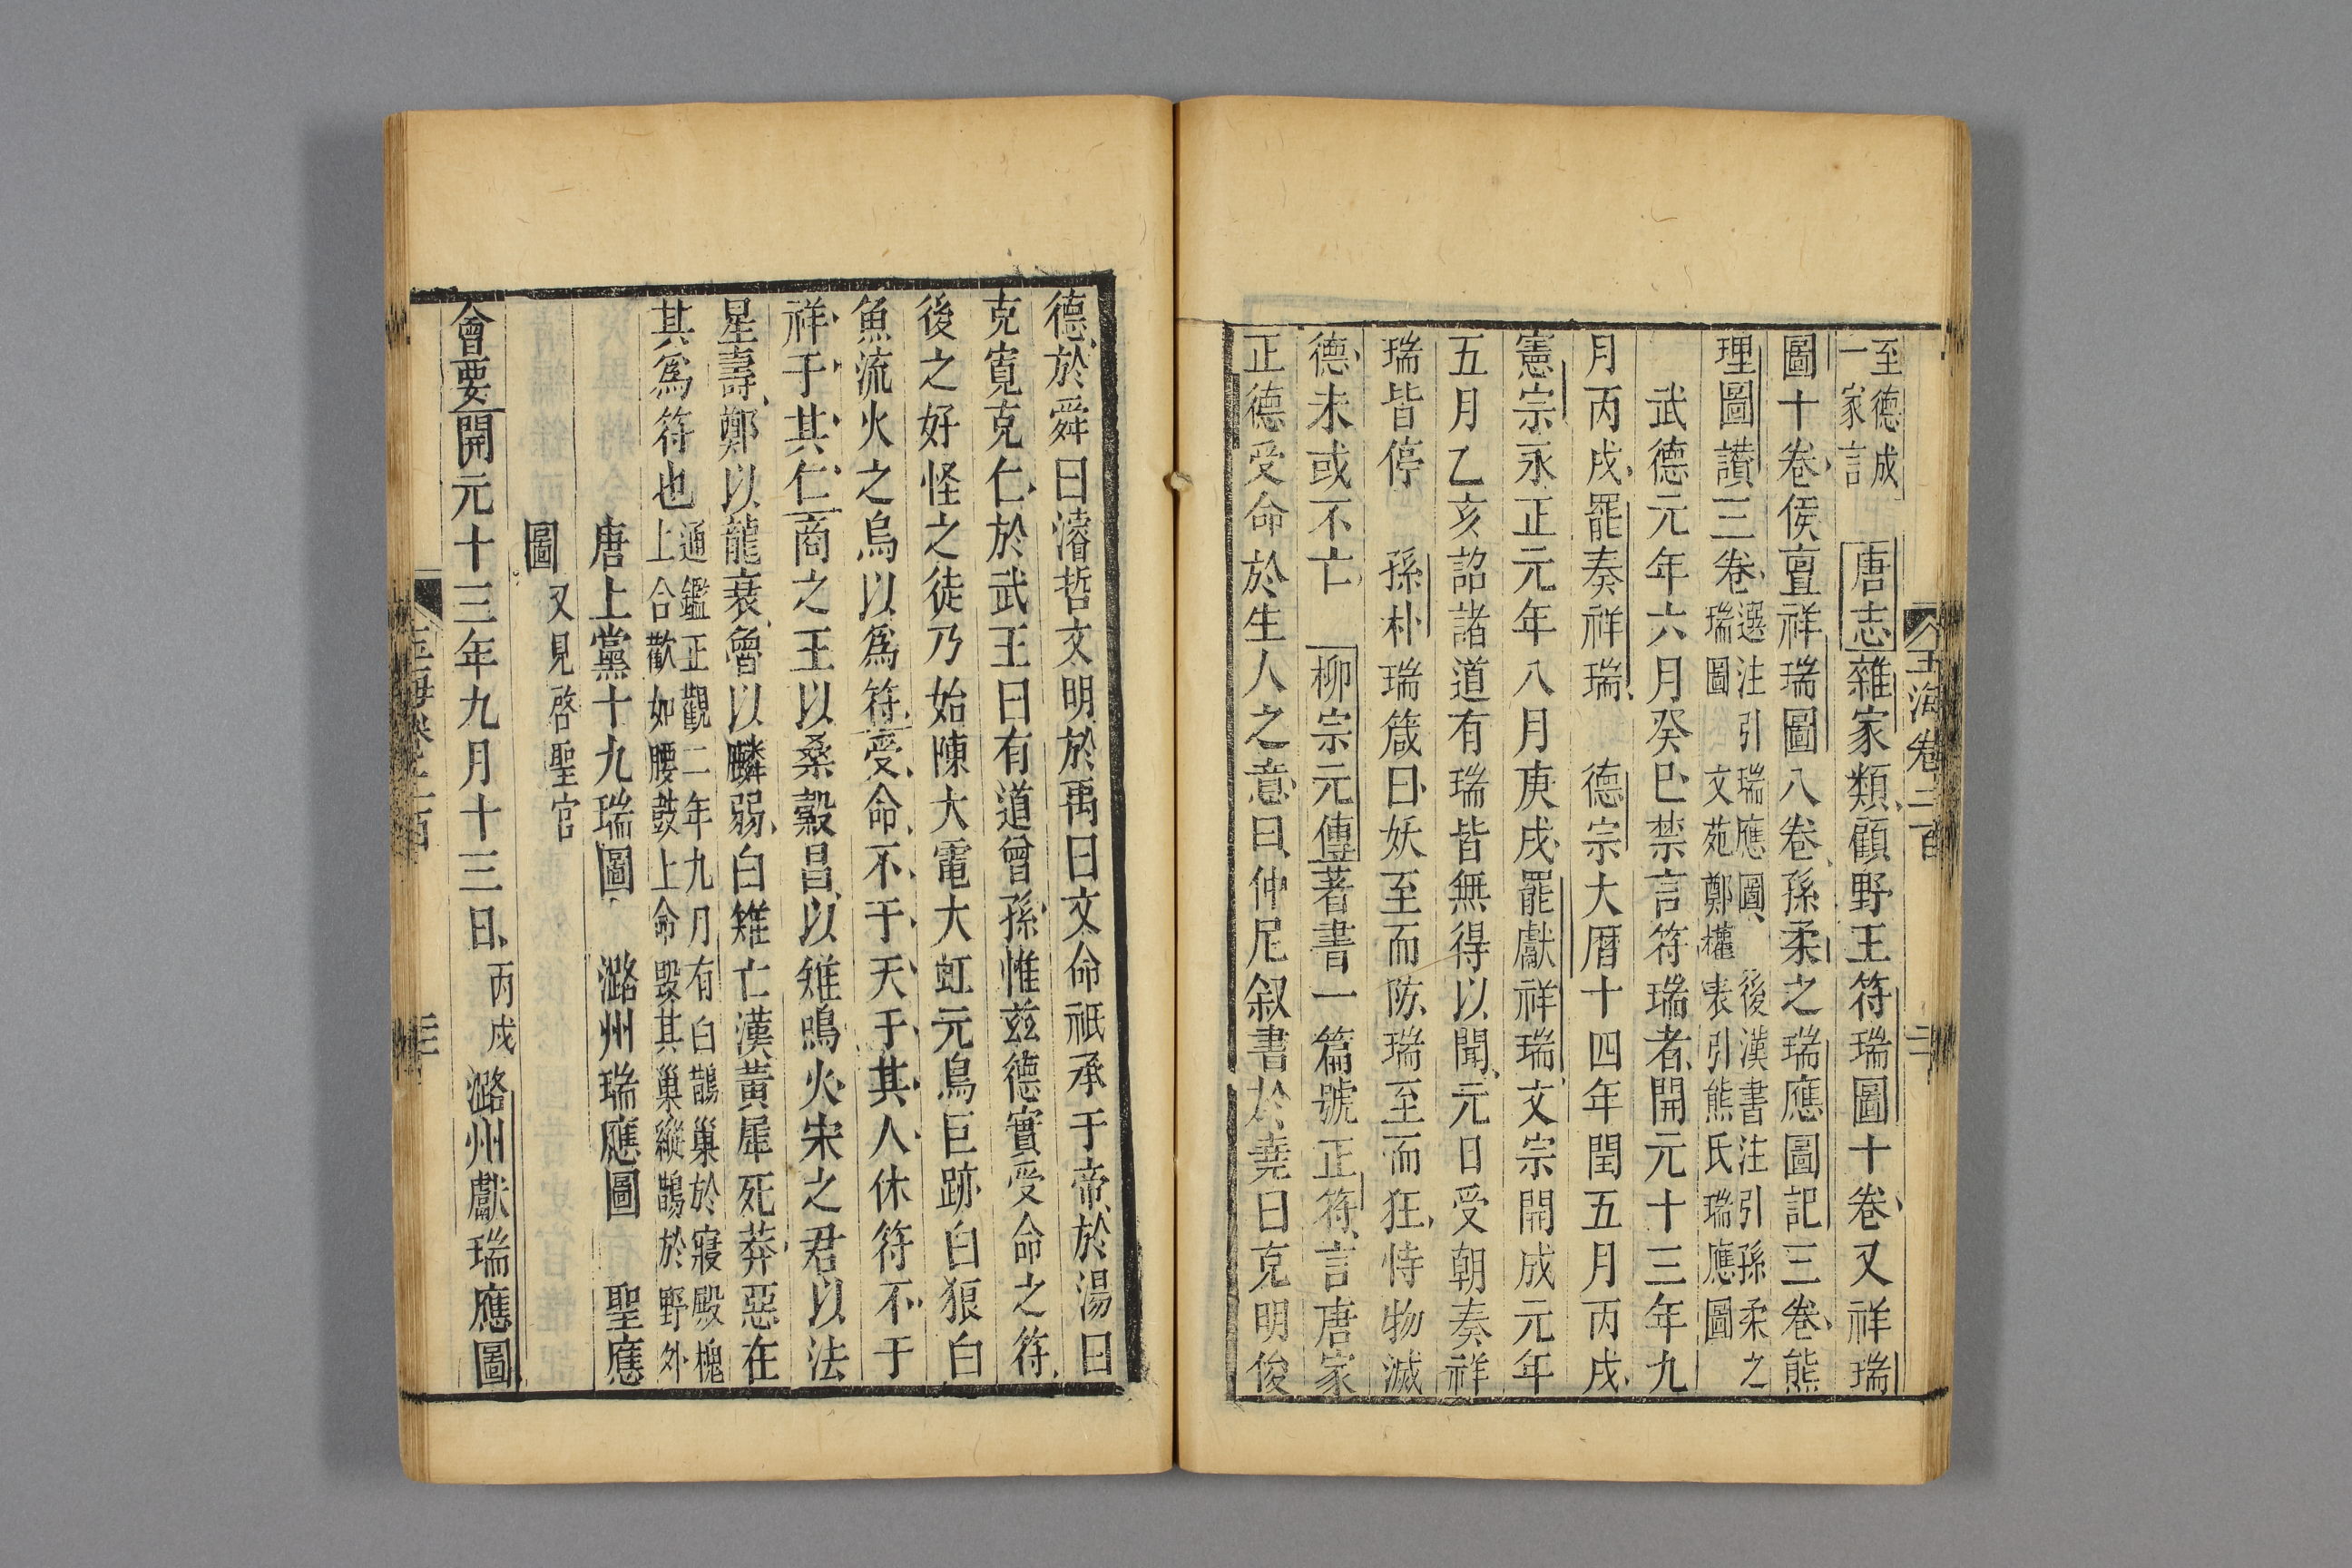 至德成
一家言
唐志雜家類顧野王符瑞圖十卷又祥瑞
圖十卷侯亶祥瑞圖八卷孫柔之瑞應圖記三卷熊
理圖讃三卷
選注引瑞應圖後漢書注引孫柔之
瑞圖文苑鄭權表引熊氏瑞應圖
武德元年六月癸巳禁言符瑞者開元十三年九
月丙戌罷奏祥瑞 德宗大厝十四年閏五月丙戌
憲宗永正元年八月庚戌罷獻祥瑞文宗開成元年
五月乙亥詔諸道有瑞皆無得以聞元日受朝奏祥
瑞皆停 孫朴瑞箴曰妖至而防瑞至而狂恃物滅
德未或不亡 柳宗元傳著書一篇號正符言唐家
正德受命於生人之意曰仲尼叙書於堯曰克明俊
玉海卷二百
德於舜曰濬哲文明於禹曰文命祇承于帝於湯曰
克寛克仁於武王曰有道曾孫惟兹德實受命之符
後之好怪之徒乃始陳大電大虹元鳥巨跡白狼白
魚流火之烏以爲符受命不于天于其人休符不于
祥于其仁商之王以桑糓昌以雉鳴火宋之君以法
星壽鄭以龍衰魯以麟弱白雉亡漢黃犀死莽惡在
其爲符也
通鑑正觀二年九月有白鵲巢於寢殿槐
上合歡如腰鼓上命毀其巢縱鵲於野外
唐上黨十九瑞圖 潞州瑞應圖 聖應
圖又見啓聖宮
會要開元十三年九月十三日丙戌潞州獻瑞應圖